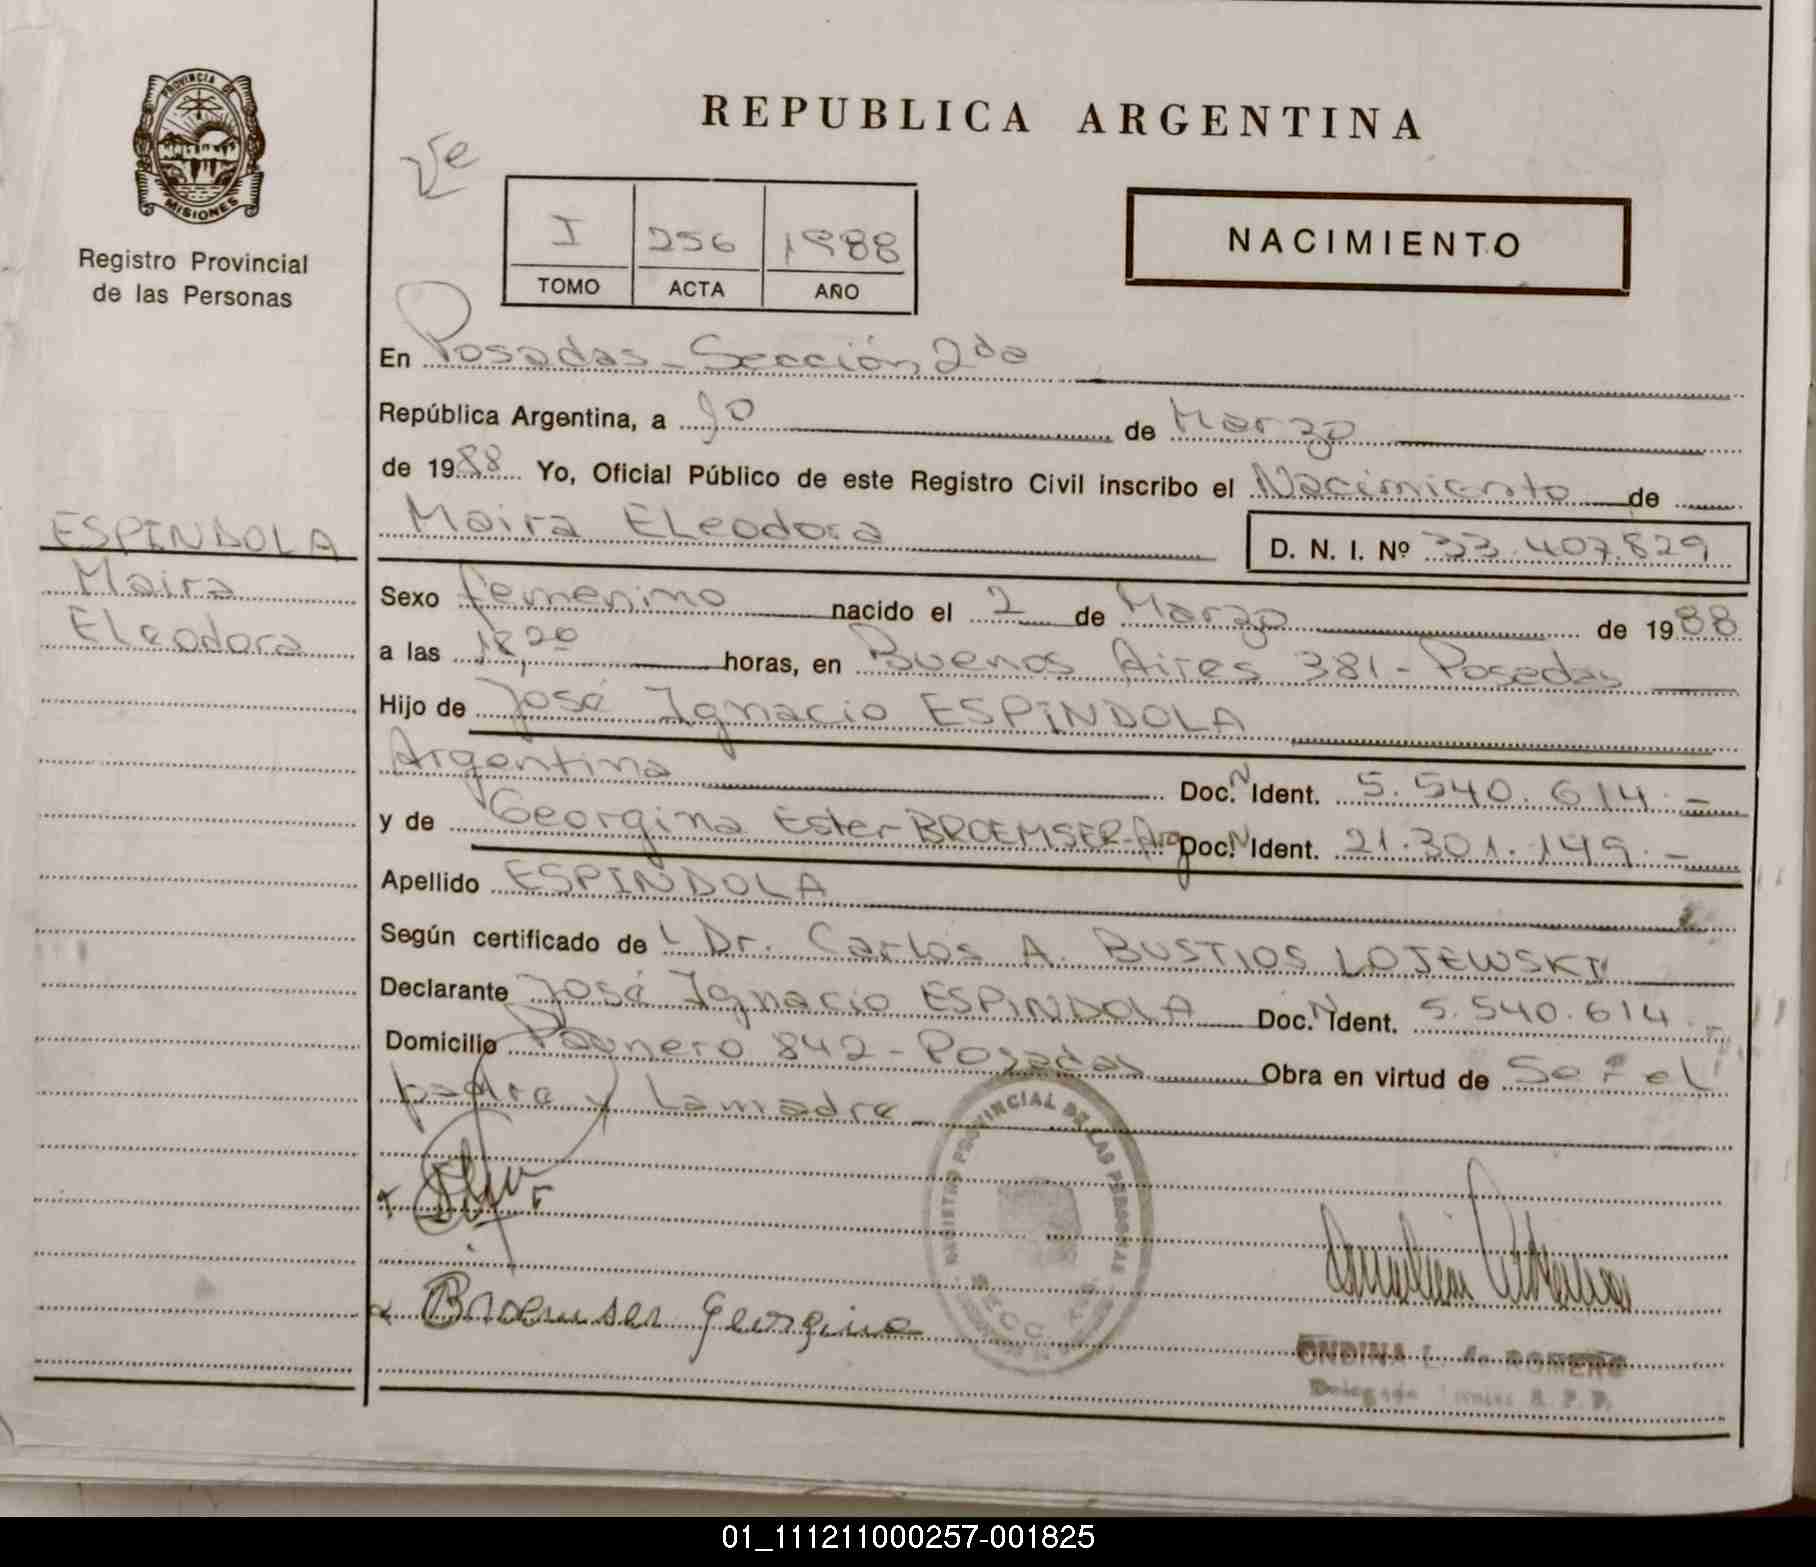 PROVINCIA DE
MISIONES
Registro Provincial
de las Personas
REPUBLICA ARGENTINA
I 256 1988
TOMO ACTA AÑO
NACIMIENTO
En Posadas - Sección 2da
República Argentina, a 10 de Marzo
de 1988 Yo, Oficial Público de este Registro Civil inscribo el Nacimiento de
Maira ELeodora
D. N. I. Nº 33.407.829
ESPINDOLA
Maira
ELeodora
Sexo femenino nacido el 2 de Marzo de 1988
a las 18,20 horas, en Buenos Aires 381 - Posadas
Hijo de José Ignacio ESPINDOLA
Argentina Doc. N Ident. 5.540.614.-
y de Georgina Ester BROEMSER - Arg Doc. N Ident. 21.301.149.-
Apellido ESPINDOLA
Según certificado de Dr. Carlos A. BUSTIOS LOJEWSKI
Declarante José Ignacio ESPINDOLA Doc. N Ident. 5.540.614
Domicilio Paunero 842 - Posadas Obra en virtud de Ser el
padre y La madre
REGISTRO PROVINCIAL DE LAS PERSONAS
Broemser Georgina
ONDINA L. de ROMERO
Delegada R. P. P.
01_111211000257-001825